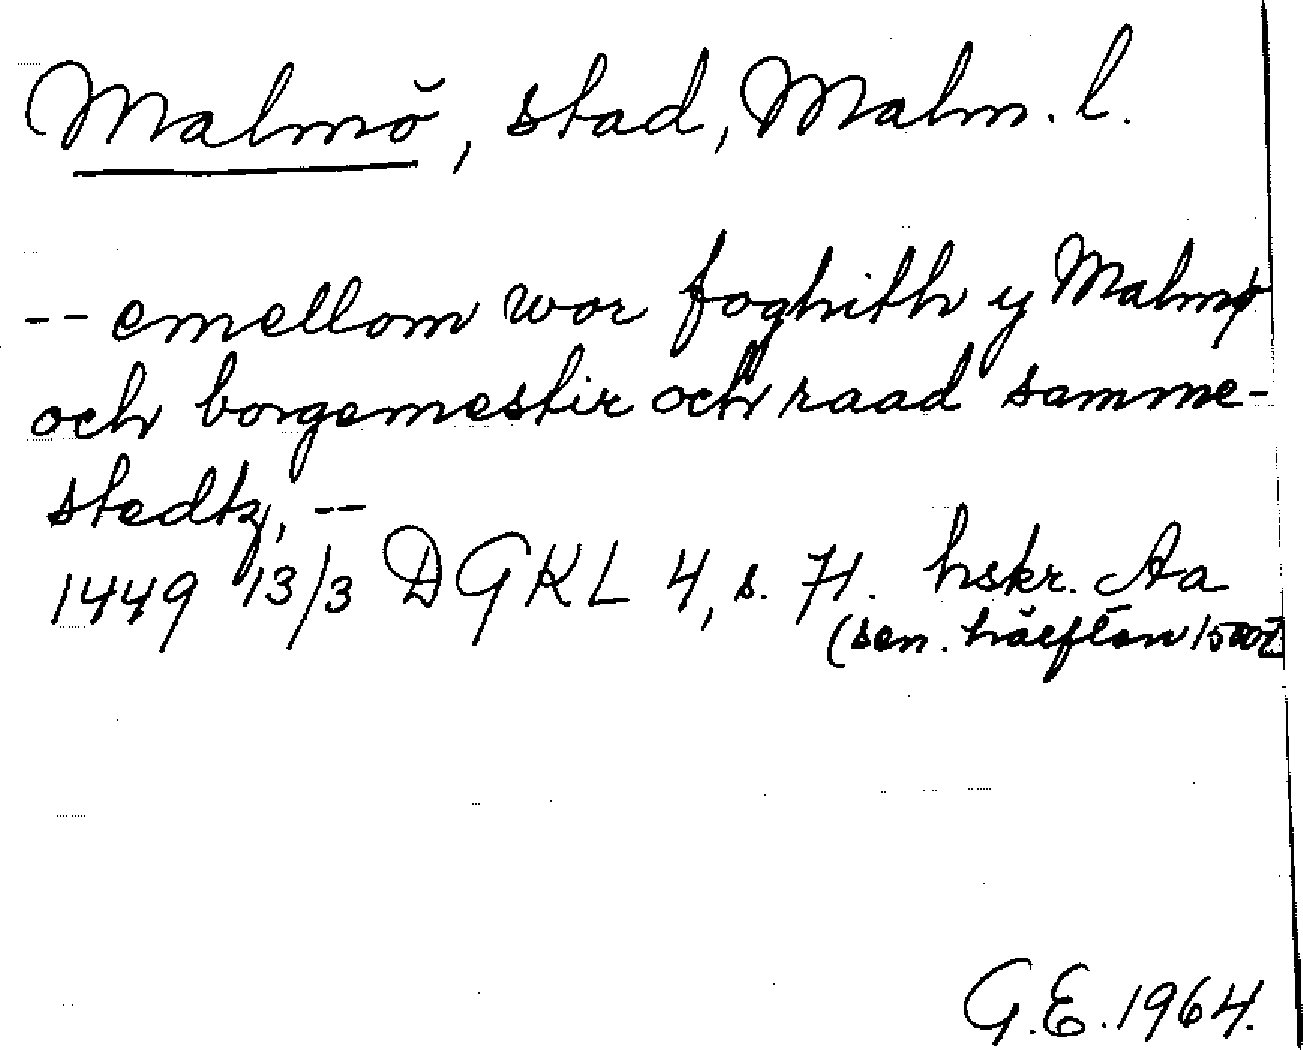 Malmö, stad, Malm. l.
-- emellom wor foghith y Malmø
och borgemestir och raad samme-
stedtz, --
1449 13/3 DGKL 4, s. 71. hskr. Aa
(sen. hälften 1500t
G.E. 1964.